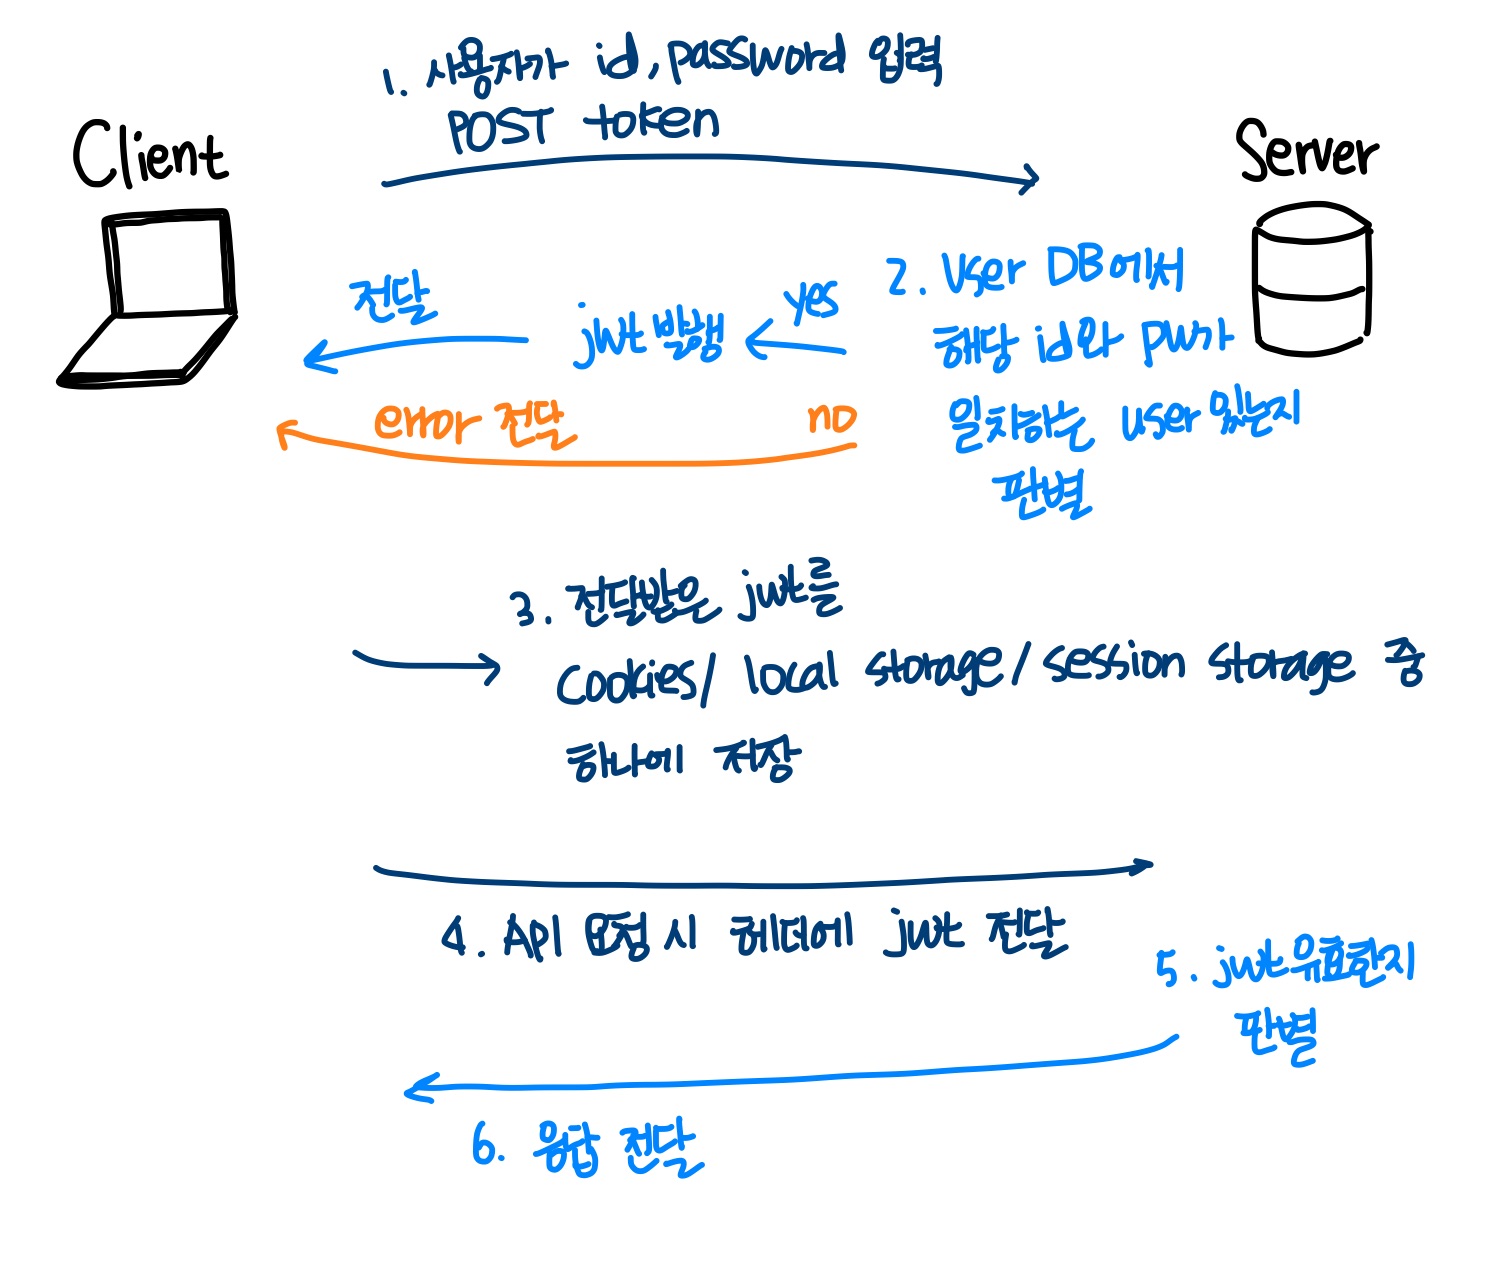 1. 사용자가 id, password 입력
POST token
Client
Server
2. User DB에서
해당 id와 pw가
일치하는 user 있는지
판별
yes
jwt 발행
전달
no
error 전달
3. 전달받은 jwt를
Cookies/ local storage/ session storage 중
하나에 저장
4. API 요청 시 헤더에 jwt 전달
5. jwt유효한지
판별
6. 응답 전달